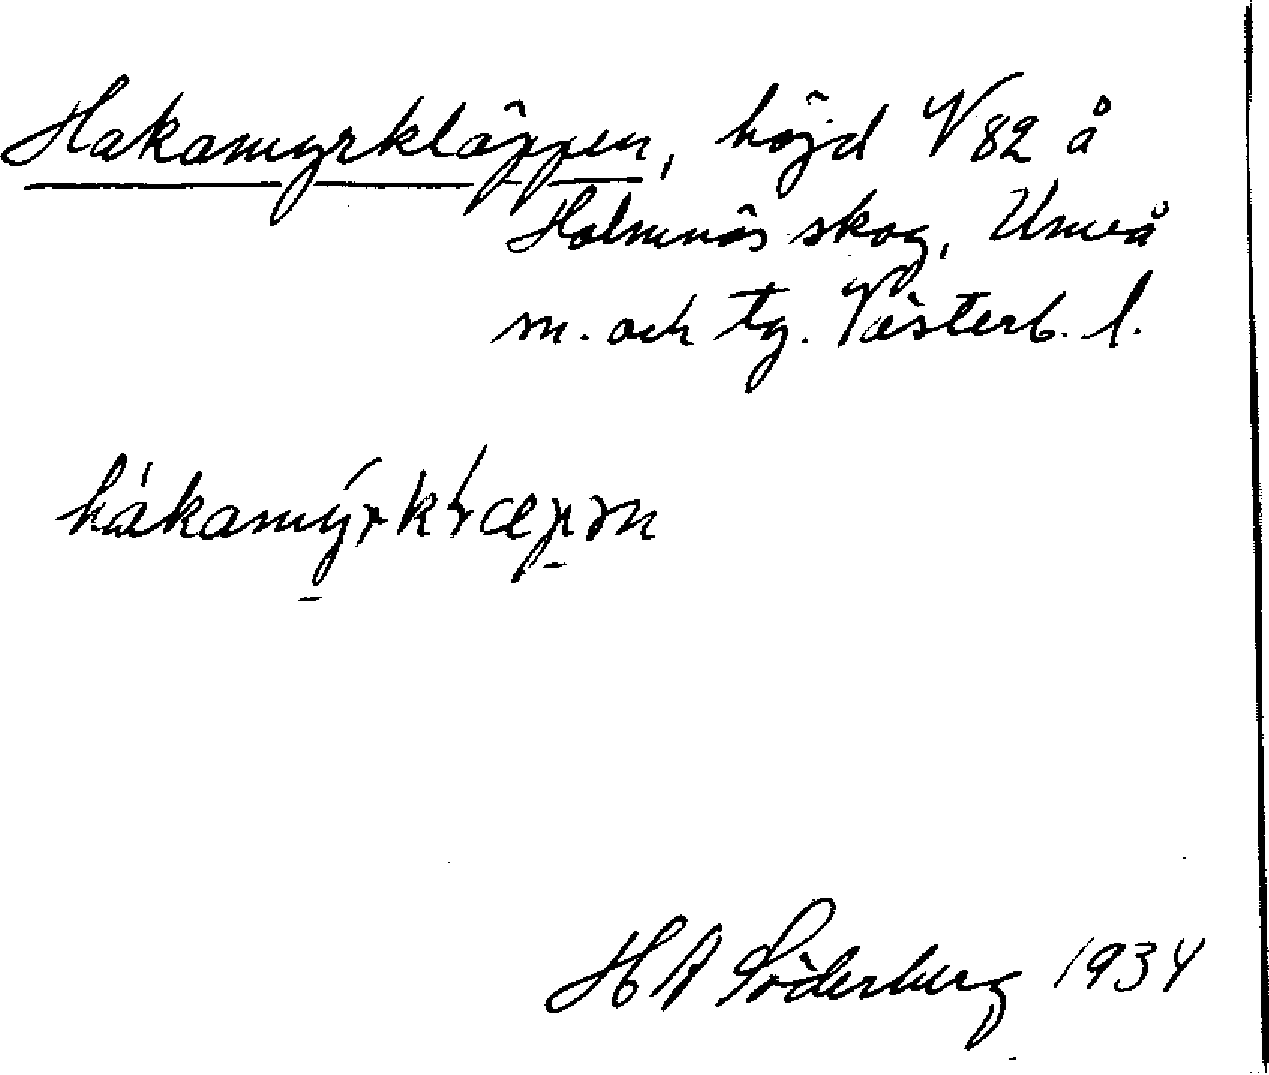 Hakamyrkläppen, höjd V 82 å
Holmnäs skog, Umeå
m. och tg. Västerb. l.
H A Söderberg 1934